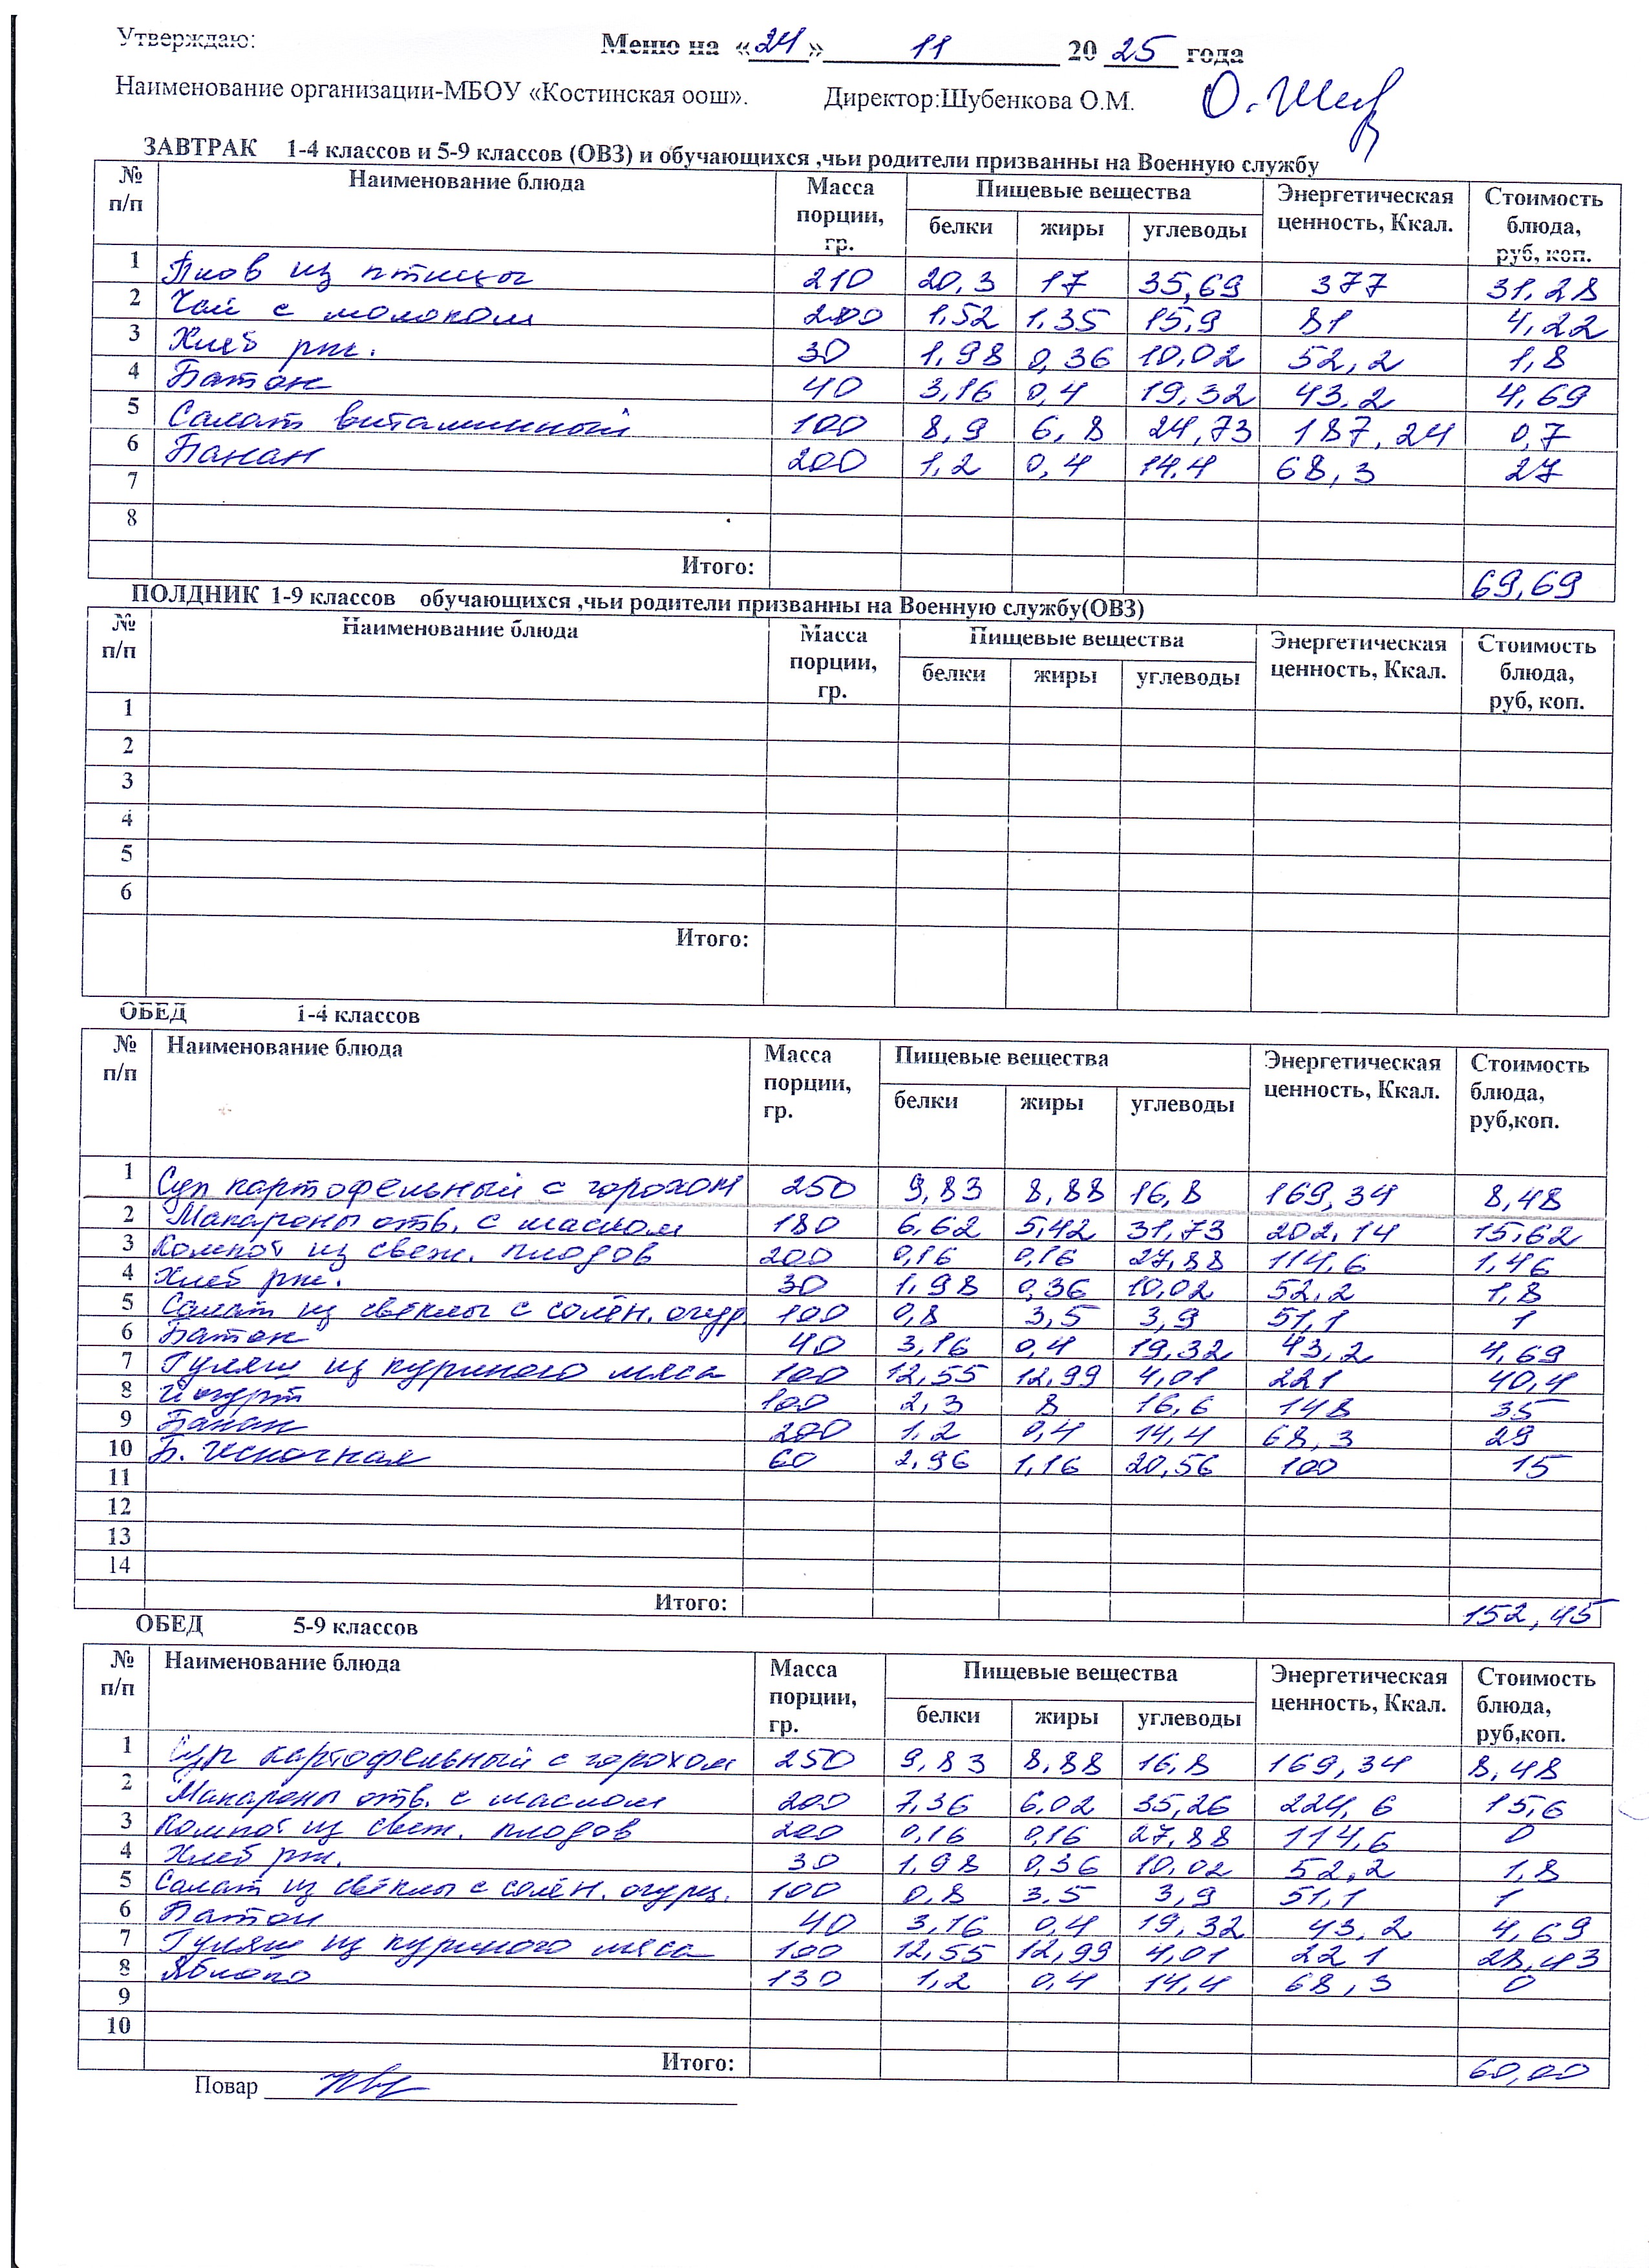 Утверждаю: Меню на «24» 11 20 25 года
Наименование организации-МБОУ «Костинская оош». Директор:Шубенкова О.М.
ЗАВТРАК 1-4 классов и 5-9 классов (ОВЗ) и обучающихся ,чьи родители призванны на Военную службу
№ п/п Наименование блюда Масса порции, гр. Пищевые вещества Энергетическая ценность, Ккал. Стоимость блюда, руб, коп.
белки жиры углеводы
1 Плов из птицы 210 20,3 17 35,69 377 31,28
2 Чай с молоком 200 1,52 1,35 15,9 81 4,22
3 Хлеб рж. 30 1,98 0,36 10,02 52,2 1,8
4 Батон 40 3,16 0,4 19,32 43,2 4,69
5 Салат витаминный 100 8,9 6,8 24,73 187,24 0,7
6 Банан 200 1,2 0,4 14,4 68,3 27
7
8
Итого: 69,69
ПОЛДНИК 1-9 классов обучающихся ,чьи родители призванны на Военную службу(ОВЗ)
№ п/п Наименование блюда Масса порции, гр. Пищевые вещества Энергетическая ценность, Ккал. Стоимость блюда, руб, коп.
белки жиры углеводы
1
2
3
4
5
6
Итого:
ОБЕД 1-4 классов
№ п/п Наименование блюда Масса порции, гр. Пищевые вещества Энергетическая ценность, Ккал. Стоимость блюда, руб,коп.
белки жиры углеводы
1 Суп картофельный с горохом 250 9,83 8,88 16,8 169,34 8,48
2 Макароны отв. с маслом 180 6,62 5,42 31,73 202,14 15,62
3 Компот из свеж. плодов 200 0,16 0,16 27,88 114,6 1,46
4 Хлеб рж. 30 1,98 0,36 10,02 52,2 1,8
5 Салат из свёклы с солён. огур. 100 0,8 3,5 3,9 51,1 1
6 Батон 40 3,16 0,4 19,32 43,2 4,69
7 Гуляш из куриного мяса 100 12,55 12,99 4,01 221 40,4
8 Йогурт 100 2,3 8 16,6 148 35
9 Банан 200 1,2 0,4 14,4 68,3 29
10 Б. чесночная 60 2,96 1,16 20,56 100 15
11
12
13
14
Итого: 152,45
ОБЕД 5-9 классов
№ п/п Наименование блюда Масса порции, гр. Пищевые вещества Энергетическая ценность, Ккал. Стоимость блюда, руб,коп.
белки жиры углеводы
1 Суп картофельный с горохом 250 9,83 8,88 16,8 169,34 8,48
2 Макароны отв. с маслом 200 7,36 6,02 35,26 224,6 15,6
3 Компот из свеж. плодов 200 0,16 0,16 27,88 114,6 0
4 Хлеб рж. 30 1,98 0,36 10,02 52,2 1,8
5 Салат из свёклы с солён. огурц. 100 0,8 3,5 3,9 51,1 1
6 Батон 40 3,16 0,4 19,32 43,2 4,69
7 Гуляш из куриного мяса 100 12,55 12,99 4,01 221 28,43
8 Яблоко 130 1,2 0,4 14,4 68,3 0
9
10
Итого: 60,00
Повар